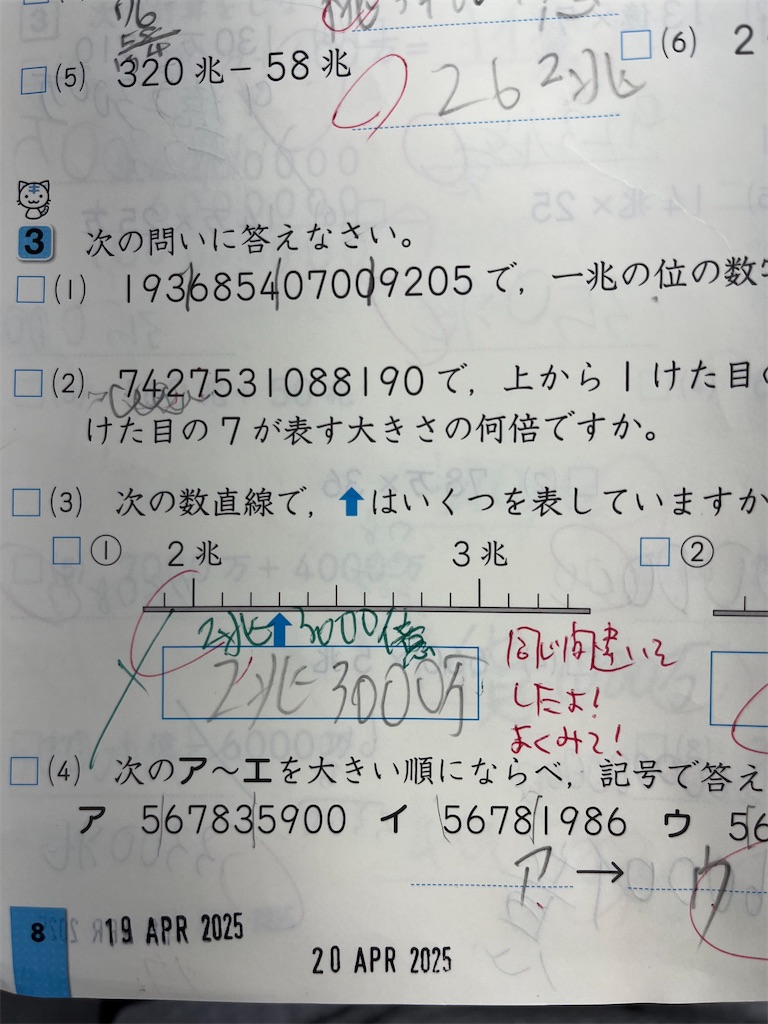 (5) 320兆－58兆
262兆
(6) 2
3 次の問いに答えなさい。
(1) 1936854070009205で，一兆の位の数
(2) 7427531088190で，上から1けた目
けた目の7が表す大きさの何倍ですか。
(3) 次の数直線で，⬆はいくつを表していますか
① 2兆 3兆 ②
2兆3000億
2兆3000万
同じ間違いを
したよ！
よくみて！
(4) 次のア～エを大きい順にならべ，記号で答え
ア 567835900 イ 56781986 ウ 56
ア → ウ
8 19 APR 2025
20 APR 2025